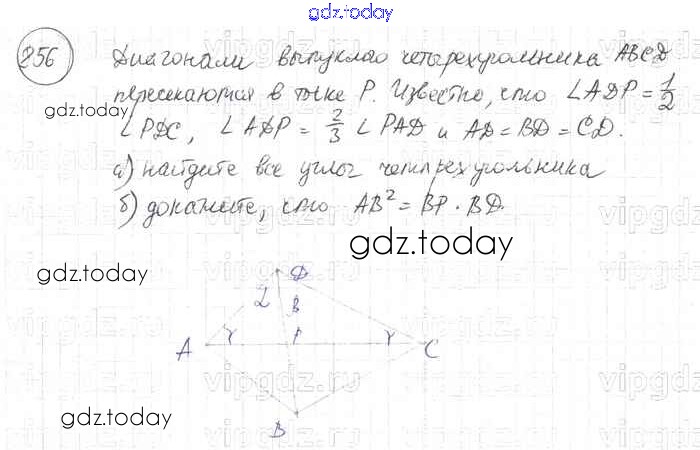 gdz.today
256 Диагонали выпуклого четырехугольника ABCD
пересекаются в точке P. Известно, что ∠ADP = 1/2
gdz.today
∠PDC, ∠ADP = 2/3 ∠PAD и AD = BD = CD.
а) найдите все углы четырехугольника
б) докажите, что AB² = BP · BD.
gdz.today
gdz.today
D
2 B
A γ P γ C
gdz.today
B